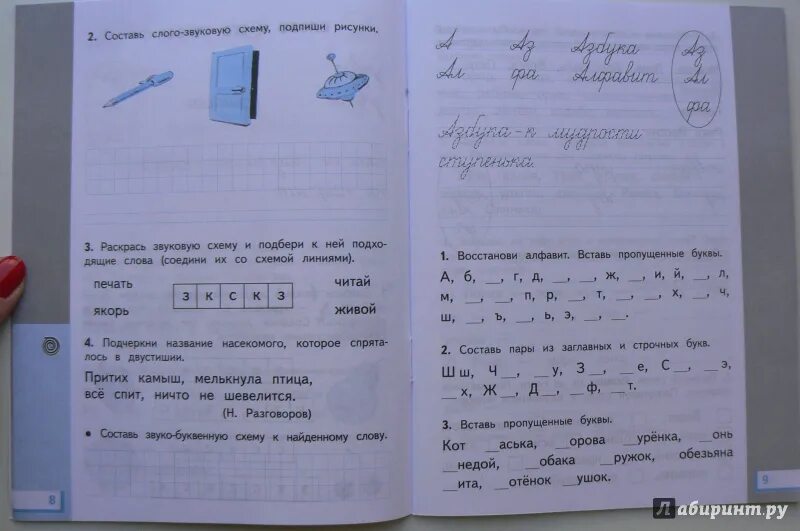 2. Составь слого-звуковую схему, подпиши рисунки.
3. Раскрась звуковую схему и подбери к ней подхо-
дящие слова (соедини их со схемой линиями).
печать
читай
З К С К З
якорь
живой
4. Подчеркни название насекомого, которое спрята-
лось в двустишии.
Притих камыш, мелькнула птица,
всё спит, ничто не шевелится.
(Н. Разговоров)
• Составь звуко-буквенную схему к найденному слову.
8
А Аз Азбука Аз
Ал фа Алфавит Ал
фа
Азбука - к мудрости
ступенька.
1. Восстанови алфавит. Вставь пропущенные буквы.
А, б, __, г, д, __, __, ж, __, и, й, __, л,
м, __, __, п, р, __, т, __, __, х, __, ч,
ш, __, ъ, __, ь, э, __, __.
2. Составь пары из заглавных и строчных букв.
Ш ш, Ч __, __ у, З __, __ е, С __, __ э,
__ х, Ж __, Д __, __ ф, __ т.
3. Вставь пропущенные буквы.
Кот __аська, __орова __урёнка, __онь
__недой, __обака __ружок, обезьяна
__ита, __отёнок __ушок.
9
Лабиринт.ру